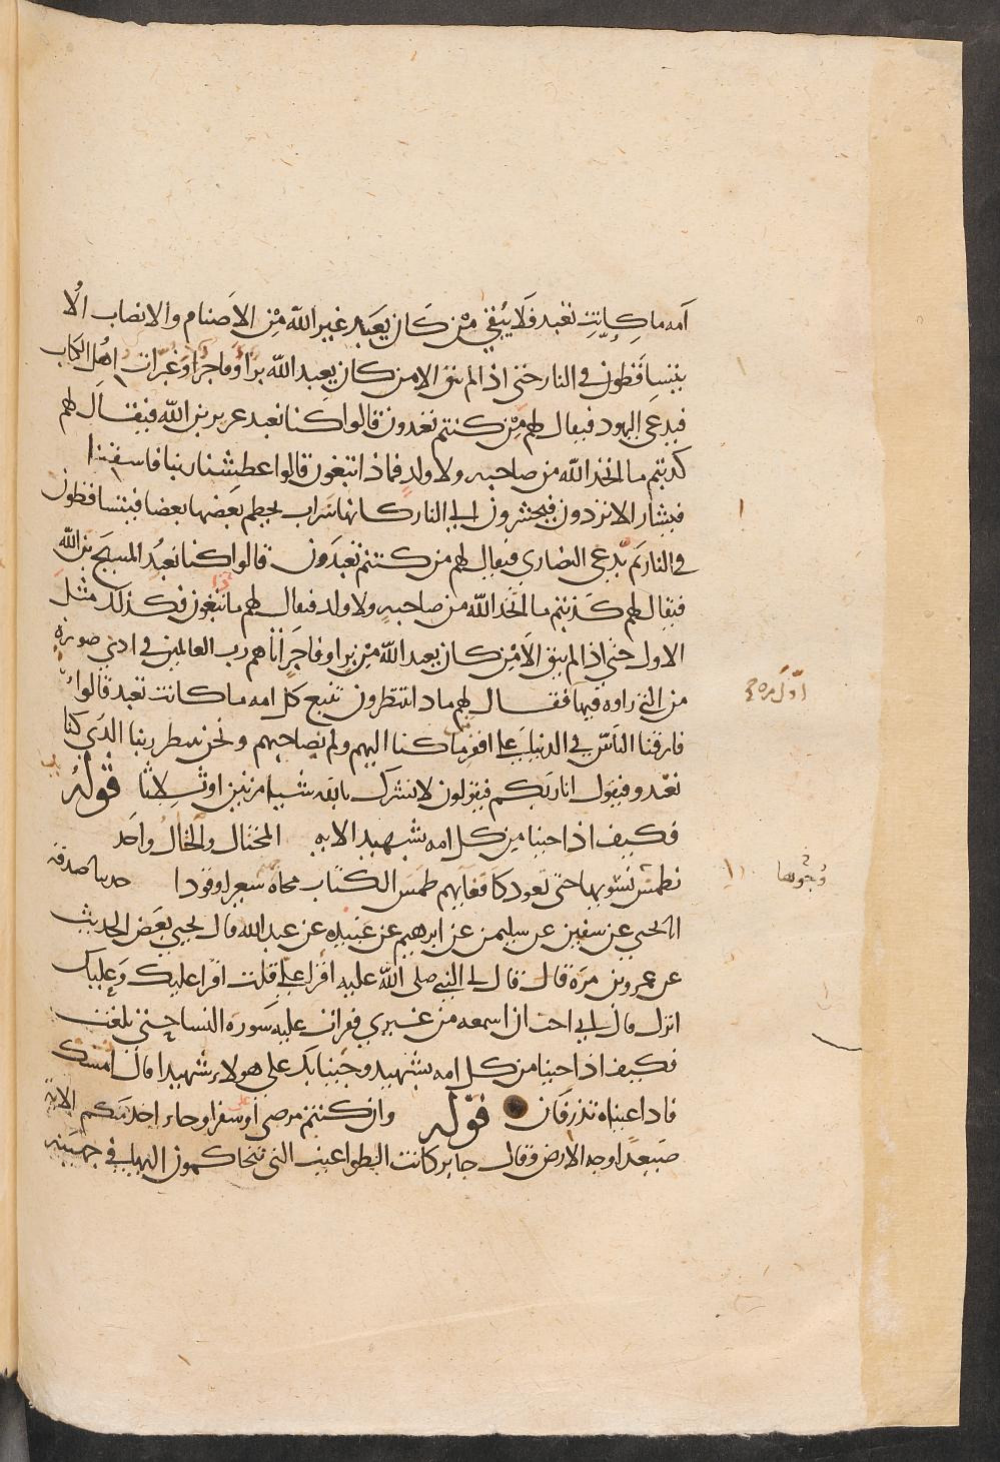 امه ما كانت تعبد فلا يبقى من كان يعبد غير الله من الاصنام والانصاب الا
يتساقطون في النار حتى اذا لم يبق الا من كان يعبد الله بر او فاجر او غبرات اهل الكتاب
فيدعى اليهود فيقال لهم من كنتم تعبدون قالوا كنا نعبد عزير بن الله فيقال لهم
كذبتم ما اتخذ الله من صاحبه ولا ولد فماذا تبغون قالوا عطشنا ربنا فاسقنا
فيشار الا تردون فيحشرون الى النار كانها سراب يحطم بعضها بعضا فيتساقطون
في النار ثم يدعى النصارى فيقال لهم من كنتم تعبدون قالوا كنا نعبد المسيح بن الله
فيقال لهم كذبتم ما اتخذ الله من صاحبه ولا ولد فيقال لهم ما تبغون فكذلك مثل
الاول حتى اذا لم يبق الا من كان يعبد الله من بر او فاجر اتاهم رب العالمين في ادنى صورة
من التي راوه فيها فقال لهم ماذا تنتظرون تتبع كل امه ما كانت تعبد قالوا
اول مره
فارقنا الناس في الدنيا على افقر ما كنا اليهم ولم نصاحبهم ونحن ننتظر ربنا الذي كنا
نعبد فيقول انا ربكم فيقولون لا نشرك بالله شيا مرتين او ثلاثا قوله
فكيف اذا جينا من كل امه بشهيد الايه المختال والخال واحد
نطمس نسويها حتى تعود كاقفايهم طمس الكتاب محاه سعيرا وقودا حدثنا صدقه
وجوها
انا يحيى عن سفين عن سليمن عن ابرهيم عن عبيده عن عبد الله قال يحيى بعض الحديث
عن عمرو بن مره قال قال لي النبي صلى الله عليه اقرا علي قلت اقرا عليك وعليك
انزل قال اني احب ان اسمعه من غيري فقرات عليه سورة النسا حتى بلغت
فكيف اذا جينا من كل امه بشهيد وجينا بك على هولاء شهيدا قال امسك
فاذا عيناه تذرفان قوله وان كنتم مرضى او على سفر او جاء احد منكم الايه
صعيدا وجه الارض وقال جابر كانت الطواغيت التي يتحاكمون اليها في جهينه